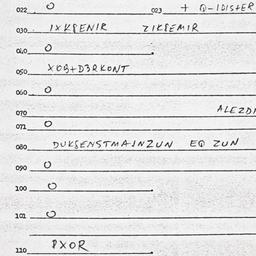 022 O 023 + Q-IDISTER
030 IXKPENIR ZIKPEMIR
040 O
050 XOB+D3RKONT
060 O
070 ALEZDI
071 O
080 DUKSENSTMAINZUN EQ ZUN
090 O
100 O
101 O
110 PXOR